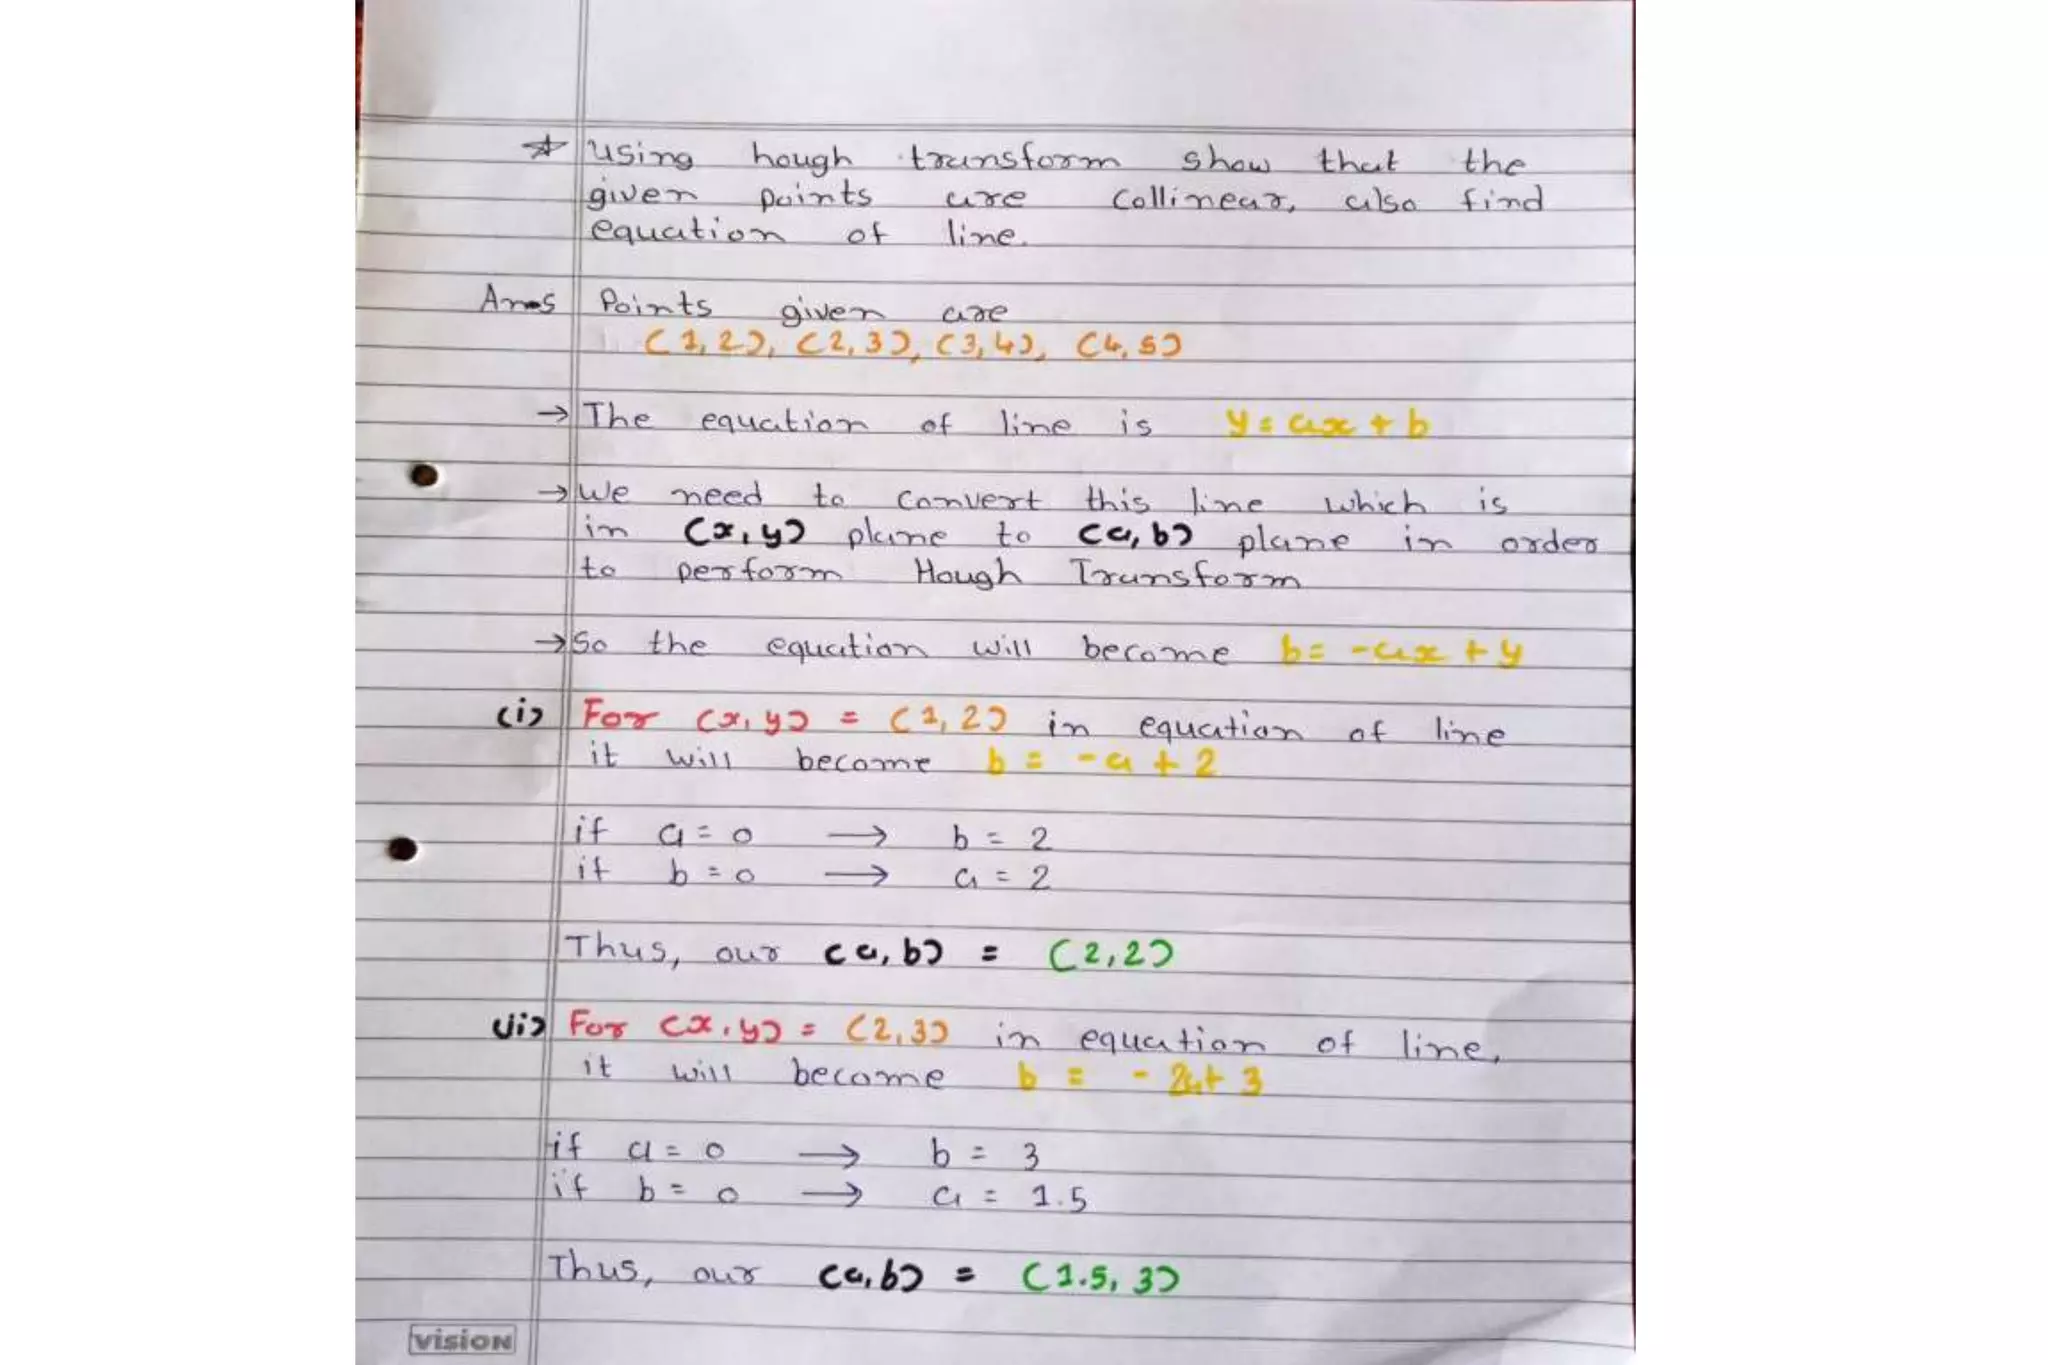 * Using hough transform show that the
given points are collinear, also find
equation of line.
Ans Points given are
(1,2), (2,3), (3,4), (4,5)
→ The equation of line is y = ax + b
→ We need to convert this line which is
in (x,y) plane to (a,b) plane in order
to perform Hough Transform
→ So the equation will become b = -ax + y
(i) For (x,y) = (1,2) in equation of line
it will become b = -a + 2
if a = 0 → b = 2
if b = 0 → a = 2
Thus, our (a,b) = (2,2)
(ii) For (x,y) = (2,3) in equation of line,
it will become b = -2a+3
if a = 0 → b = 3
if b = 0 → a = 1.5
Thus, our (a,b) = (1.5, 3)
VISION